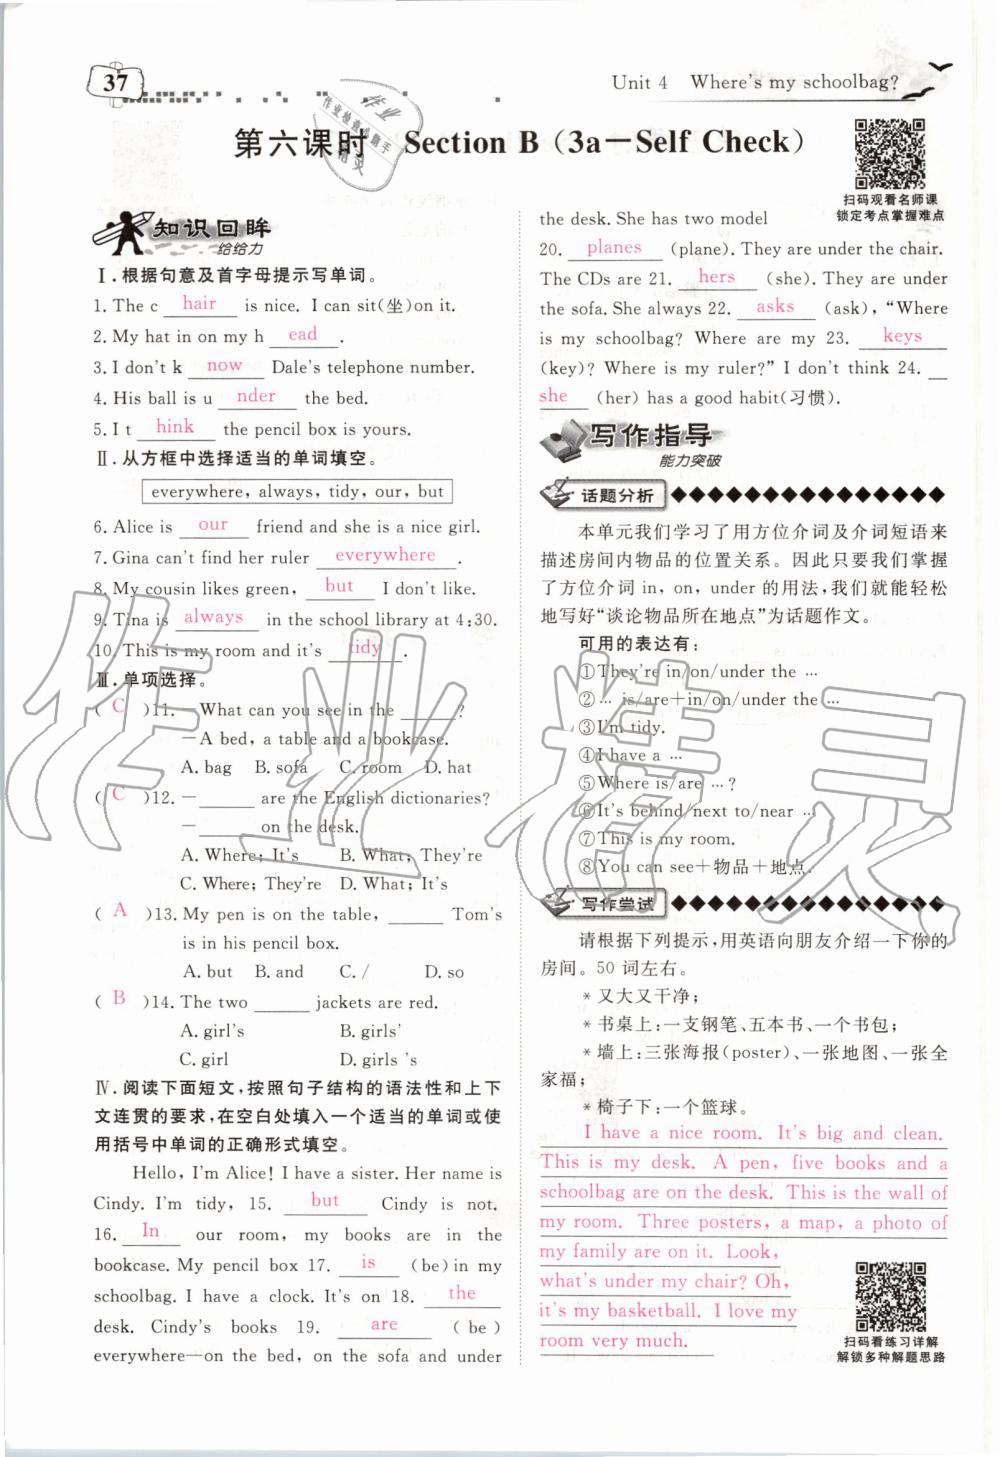 37
Unit 4 Where's my schoolbag?
第六课时 Section B (3a—Self Check)
扫码观看名师课
锁定考点掌握难点
知识回眸
给给力
Ⅰ.根据句意及首字母提示写单词。
1. The c hair is nice. I can sit(坐)on it.
2. My hat in on my h ead .
3. I don't k now Dale's telephone number.
4. His ball is u nder the bed.
5. I t hink the pencil box is yours.
Ⅱ.从方框中选择适当的单词填空。
everywhere, always, tidy, our, but
6. Alice is our friend and she is a nice girl.
7. Gina can't find her ruler everywhere .
8. My cousin likes green, but I don't like.
9. Tina is always in the school library at 4:30.
10. This is my room and it's tidy .
Ⅲ.单项选择。
( C )11. —What can you see in the ______?
—A bed, a table and a bookcase.
A. bag B. sofa C. room D. hat
( C )12. —______ are the English dictionaries?
—______ on the desk.
A. Where; It's B. What; They're
C. Where; They're D. What; It's
( A )13. My pen is on the table, ______ Tom's
is in his pencil box.
A. but B. and C. / D. so
( B )14. The two ______ jackets are red.
A. girl's B. girls'
C. girl D. girls 's
Ⅳ.阅读下面短文,按照句子结构的语法性和上下
文连贯的要求,在空白处填入一个适当的单词或使
用括号中单词的正确形式填空。
Hello, I'm Alice! I have a sister. Her name is
Cindy. I'm tidy, 15. but Cindy is not.
16. In our room, my books are in the
bookcase. My pencil box 17. is (be)in my
schoolbag. I have a clock. It's on 18. the
desk. Cindy's books 19. are (be)
everywhere—on the bed, on the sofa and under
the desk. She has two model
20. planes (plane). They are under the chair.
The CDs are 21. hers (she). They are under
the sofa. She always 22. asks (ask), "Where
is my schoolbag? Where are my 23. keys
(key)? Where is my ruler?" I don't think 24.
she (her) has a good habit(习惯).
写作指导
能力突破
话题分析
本单元我们学习了用方位介词及介词短语来
描述房间内物品的位置关系。因此只要我们掌握
了方位介词 in, on, under 的用法,我们就能轻松
地写好“谈论物品所在地点”为话题作文。
可用的表达有:
①They're in/on/under the …
②… is/are+in/on/under the …
③I'm tidy.
④I have a …
⑤Where is/are …?
⑥It's behind/next to/near …
⑦This is my room.
⑧You can see+物品+地点.
写作尝试
请根据下列提示,用英语向朋友介绍一下你的
房间。50 词左右。
*又大又干净;
*书桌上:一支钢笔、五本书、一个书包;
*墙上:三张海报(poster)、一张地图、一张全
家福;
*椅子下:一个篮球。
I have a nice room. It's big and clean.
This is my desk. A pen, five books and a
schoolbag are on the desk. This is the wall of
my room. Three posters, a map, a photo of
my family are on it. Look,
what's under my chair? Oh,
it's my basketball. I love my
room very much.
扫码看练习详解
解锁多种解题思路
作业精灵